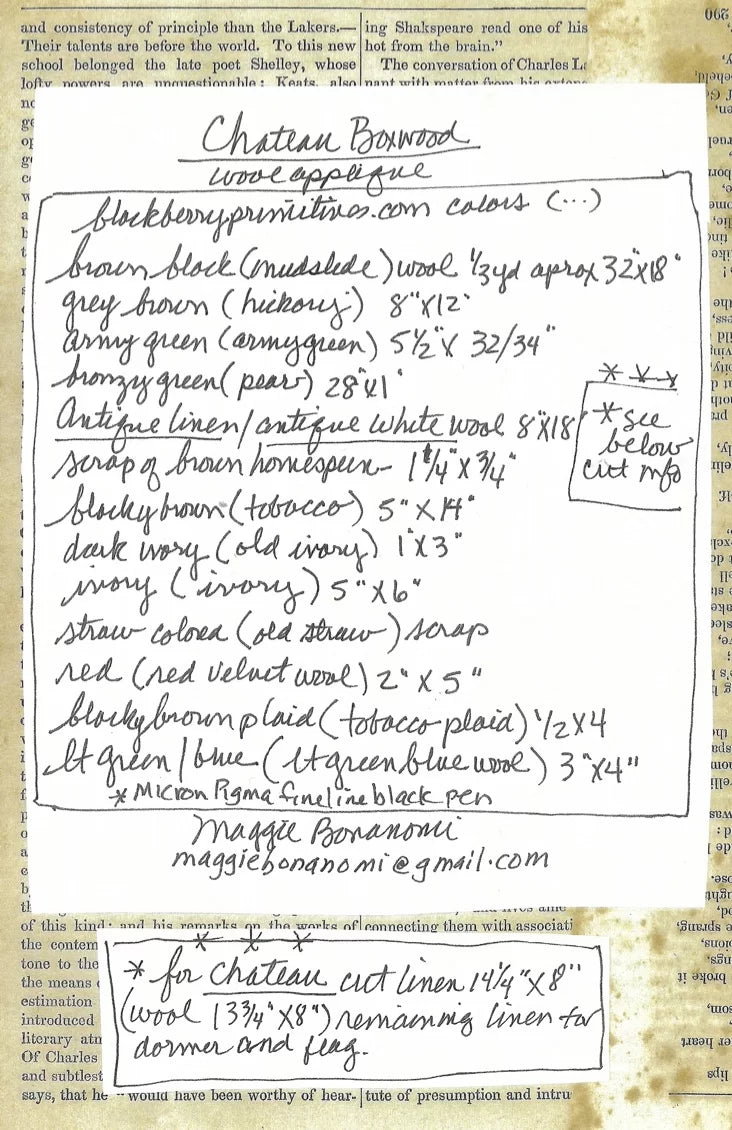 and consistency of principle than the Lakers.—
Their talents are before the world. To this new
school belonged the late poet Shelley, whose
lofty powers are unquestionable; Keats, also
ing Shakspeare read one of his
hot from the brain."
The conversation of Charles L
nant with matter from his
Chateau Boxwood
wool applique
blackberryprimitives.com colors (...)
brown black (mudslide) wool 1/3 yd aprox 32"x18"
grey brown (hickory) 8"x12"
army green (armygreen) 5 1/2" x 32/34"
bronzy green (pear) 28"x1"
Antique linen/antique white wool 8"x18"
scrap of brown homespun - 1 1/4" x 3/4"
blacky brown (tobacco) 5" x 14"
dark ivory (old ivory) 1"x3"
ivory (ivory) 5"x6"
straw colored (old straw) scrap
red (red velvet wool) 2" x 5"
blacky brown plaid (tobacco plaid) 1/2 x 4
lt green/blue (lt green blue wool) 3"x4"
* Micron Pigma fineline black pen
* * *
* see
below
cut info
Maggie Bonanomi
maggiebonanomi@gmail.com
of this kind; and his remarks on the works of
the contem
tone to the
the means
estimation
introduced
literary atm
Of Charles
and subtlest
says, that he "would have been worthy of hear-
connecting them with associati
* * *
* for chateau cut linen 14 1/4" x 8"
(wool 13 3/4" x 8") remaining linen for
dormer and flag.
tute of presumption and intru